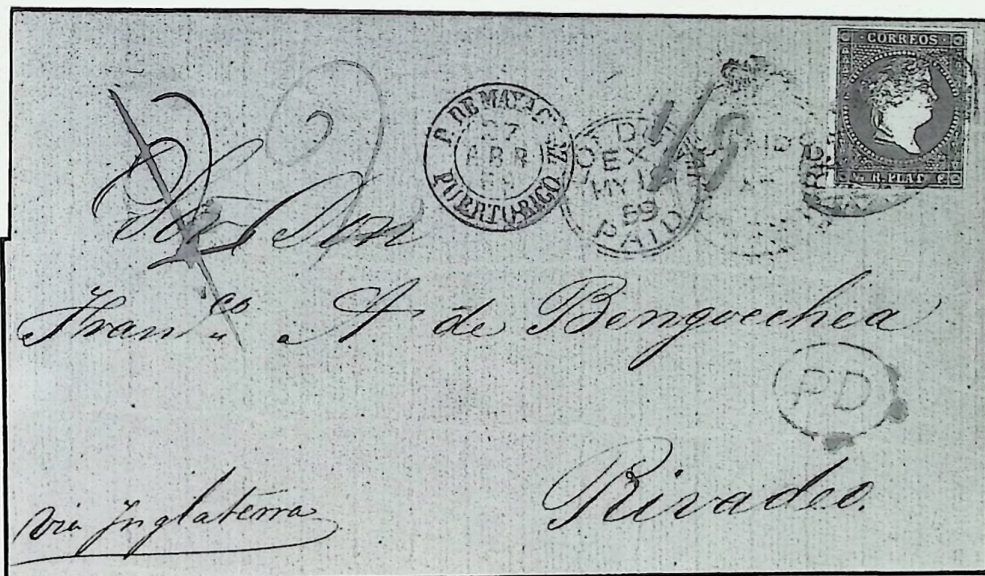 CORREOS
Y. R. PLATA F.
P. DE MAYAGUEZ
27
ABR
59
PUERTO-RICO
LONDON
EX
MY 1
59
PAID
PAID
1/5
Sr. Don
Fran.co A. de Bengoechea
PD
Rivadeo.
via Inglaterra